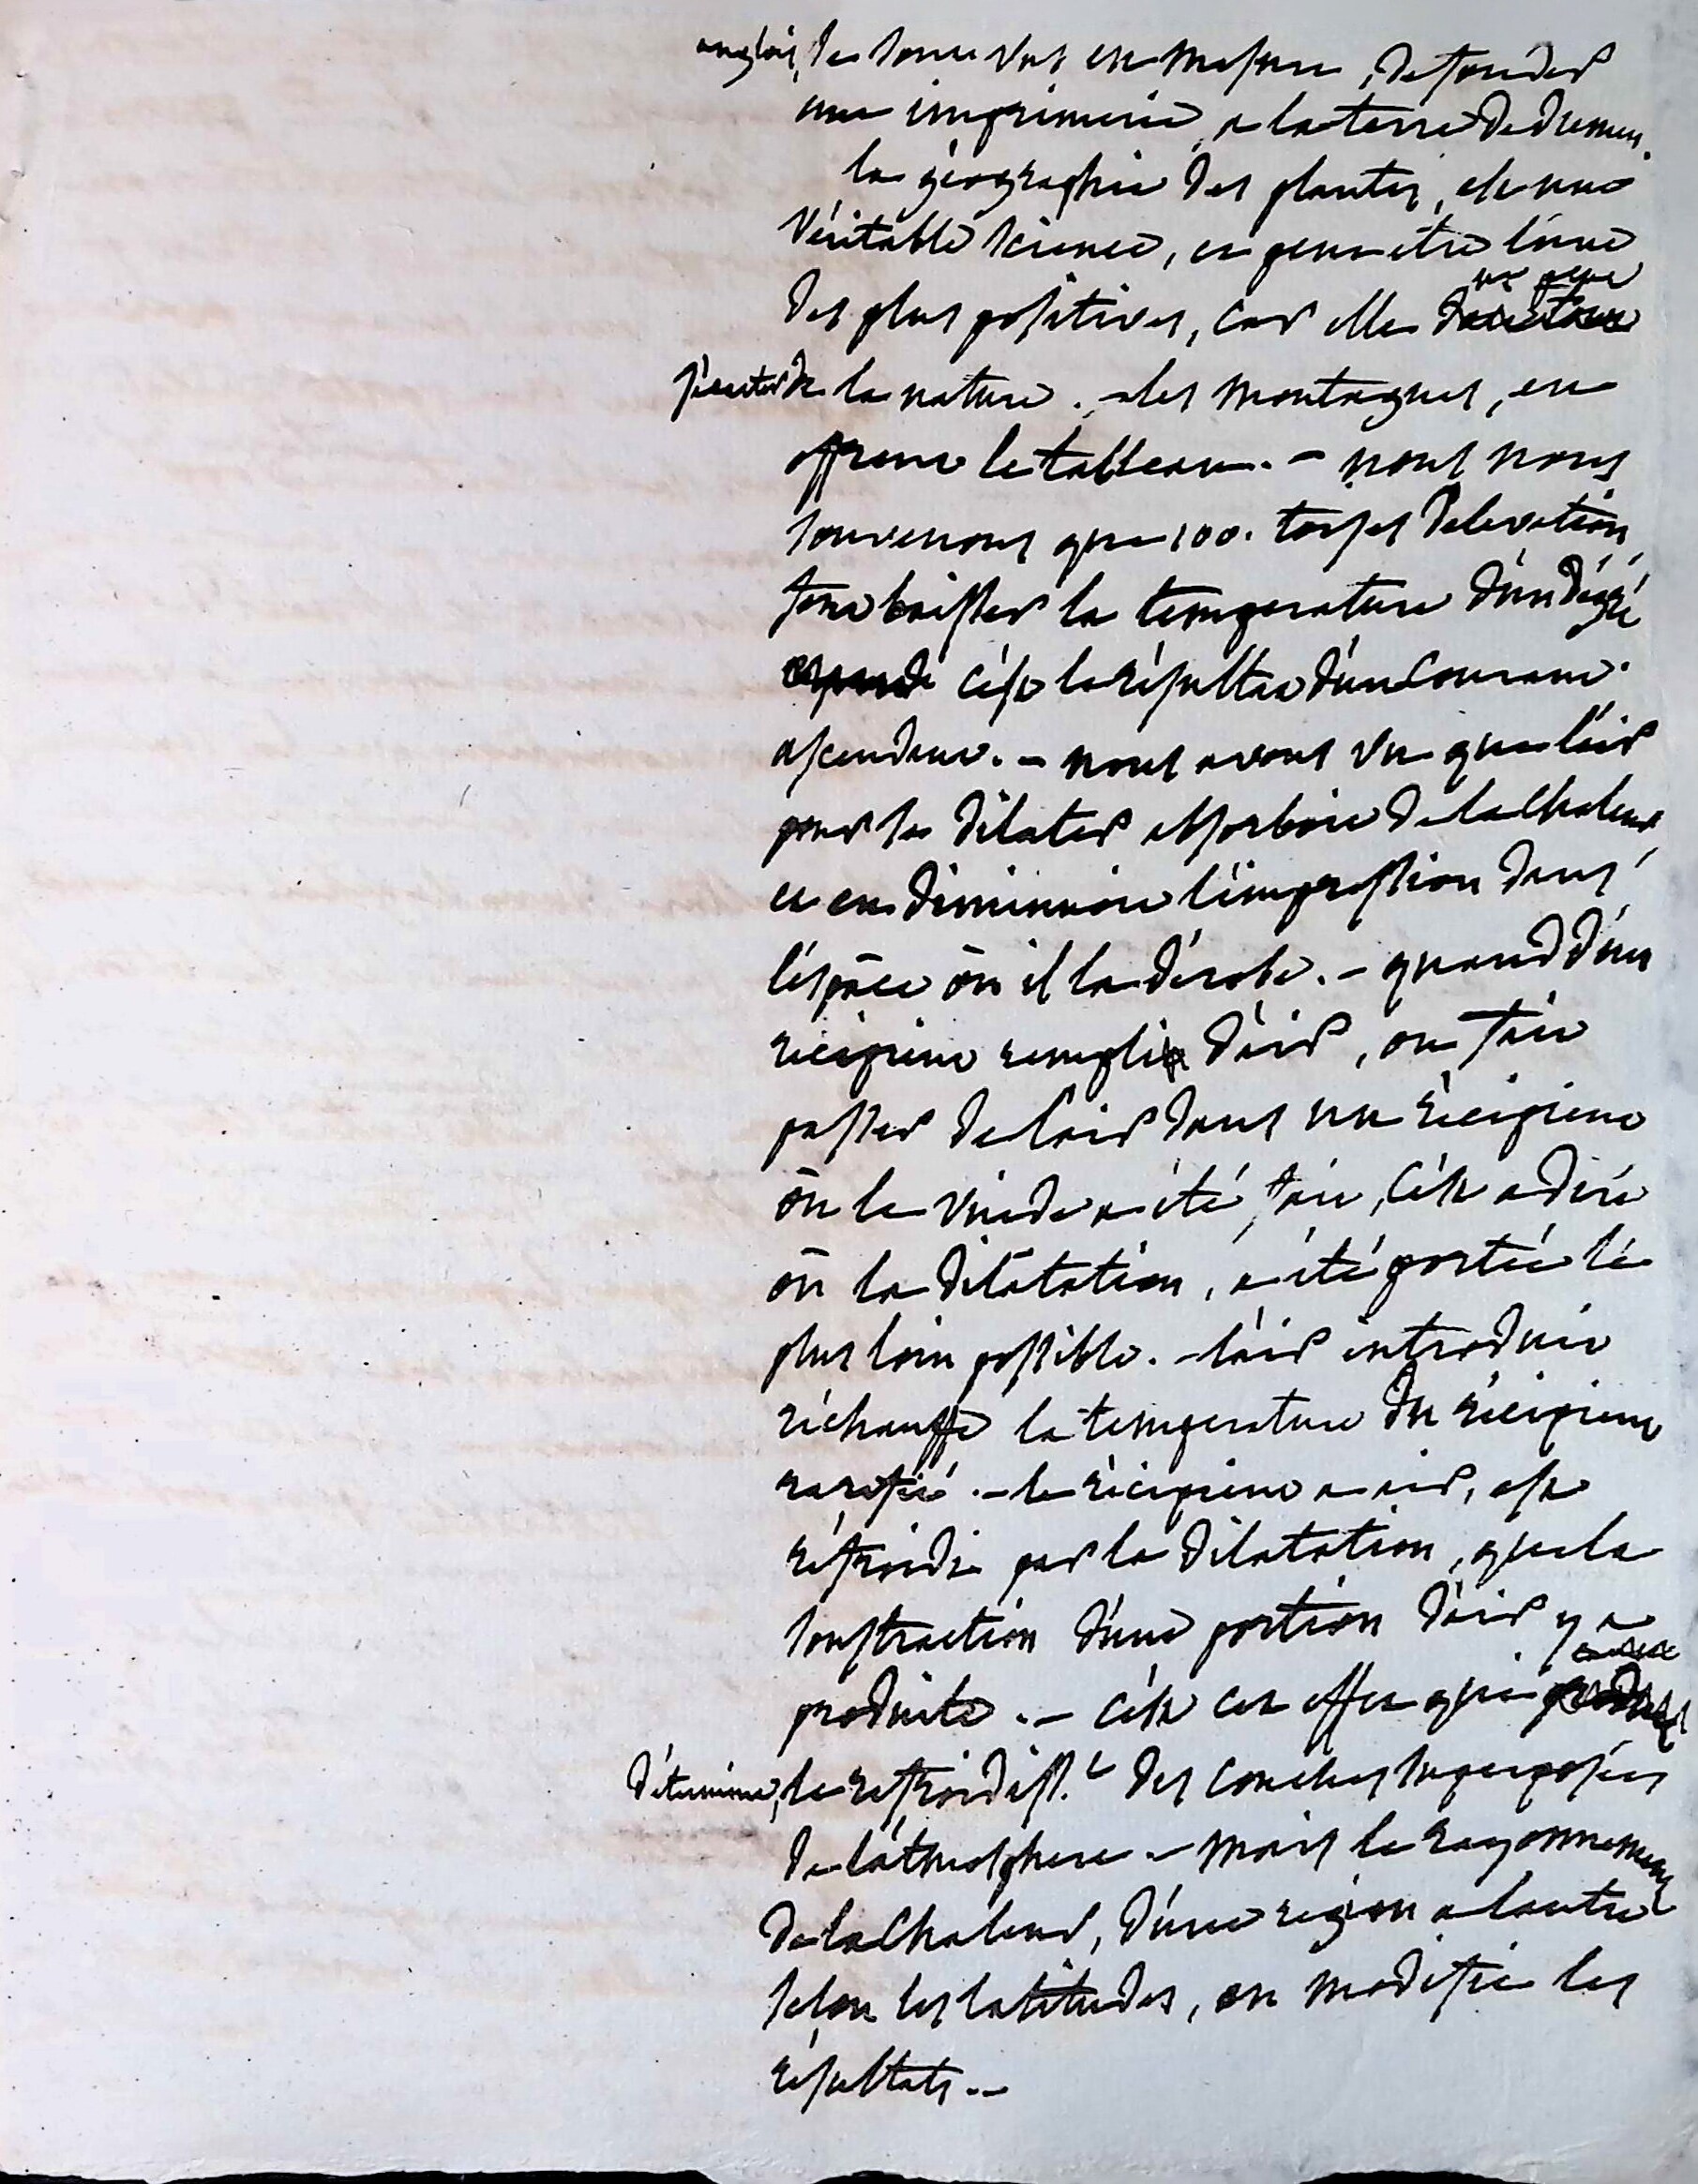 anglois, se sont vus en mesure, de fonder
une imprimerie, a la terre de diemen.
la géographie des plantes, est une
véritable science, et peut être l'une
des plus positives, car elle ne peut
s'écarter de la nature. - les montagnes, en
offrent le tableau. - nous nous
souvenons que 100. toises d'elevation,
font baisser la temperature d'un dégré
c'est le résultat d'un courant
ascendant. - nous avons vu que l'air
pour se dilater absorboit de la chaleur,
et en diminuoit l'impression dans
l'éspace ou il la dérobe. - quand d'un
récipient rempli d'air, on fait
passer de l'air dans un récipient
ou le vuide a été fait, c'est a dire
ou la dilatation, a été portée le
plus loin possible. - l'air introduit
réchauffe la temperature du récipient
rarefié. - le récipient a air, est
réfroidi par la dilatation, que la
soustraction d'une portion d'air y a
produite. - c'est cet effet qui
détermine, le refroidiss.t des couches superposées
de l'athmosphere - mais le rayonnement
de la chaleur, d'une region a l'autre
selon les latitudes, en modifie les
résultats. -